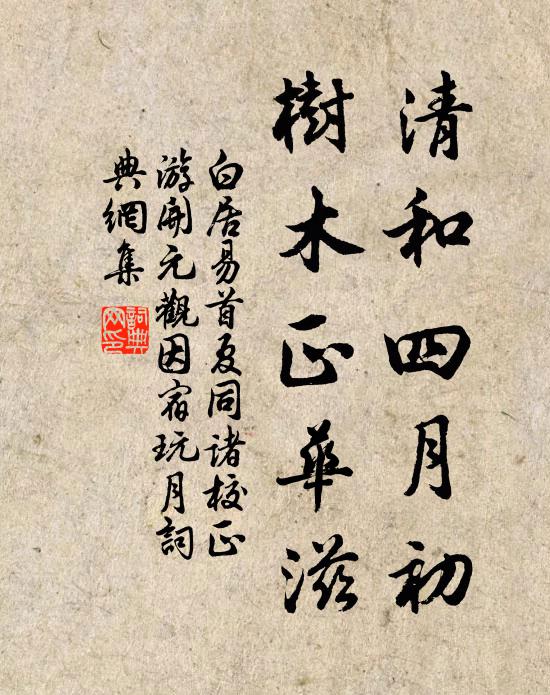 清和四月初
樹木正華滋
白居易首夏同諸校正
游開元觀因宿玩月詞
典網集
詞典網印